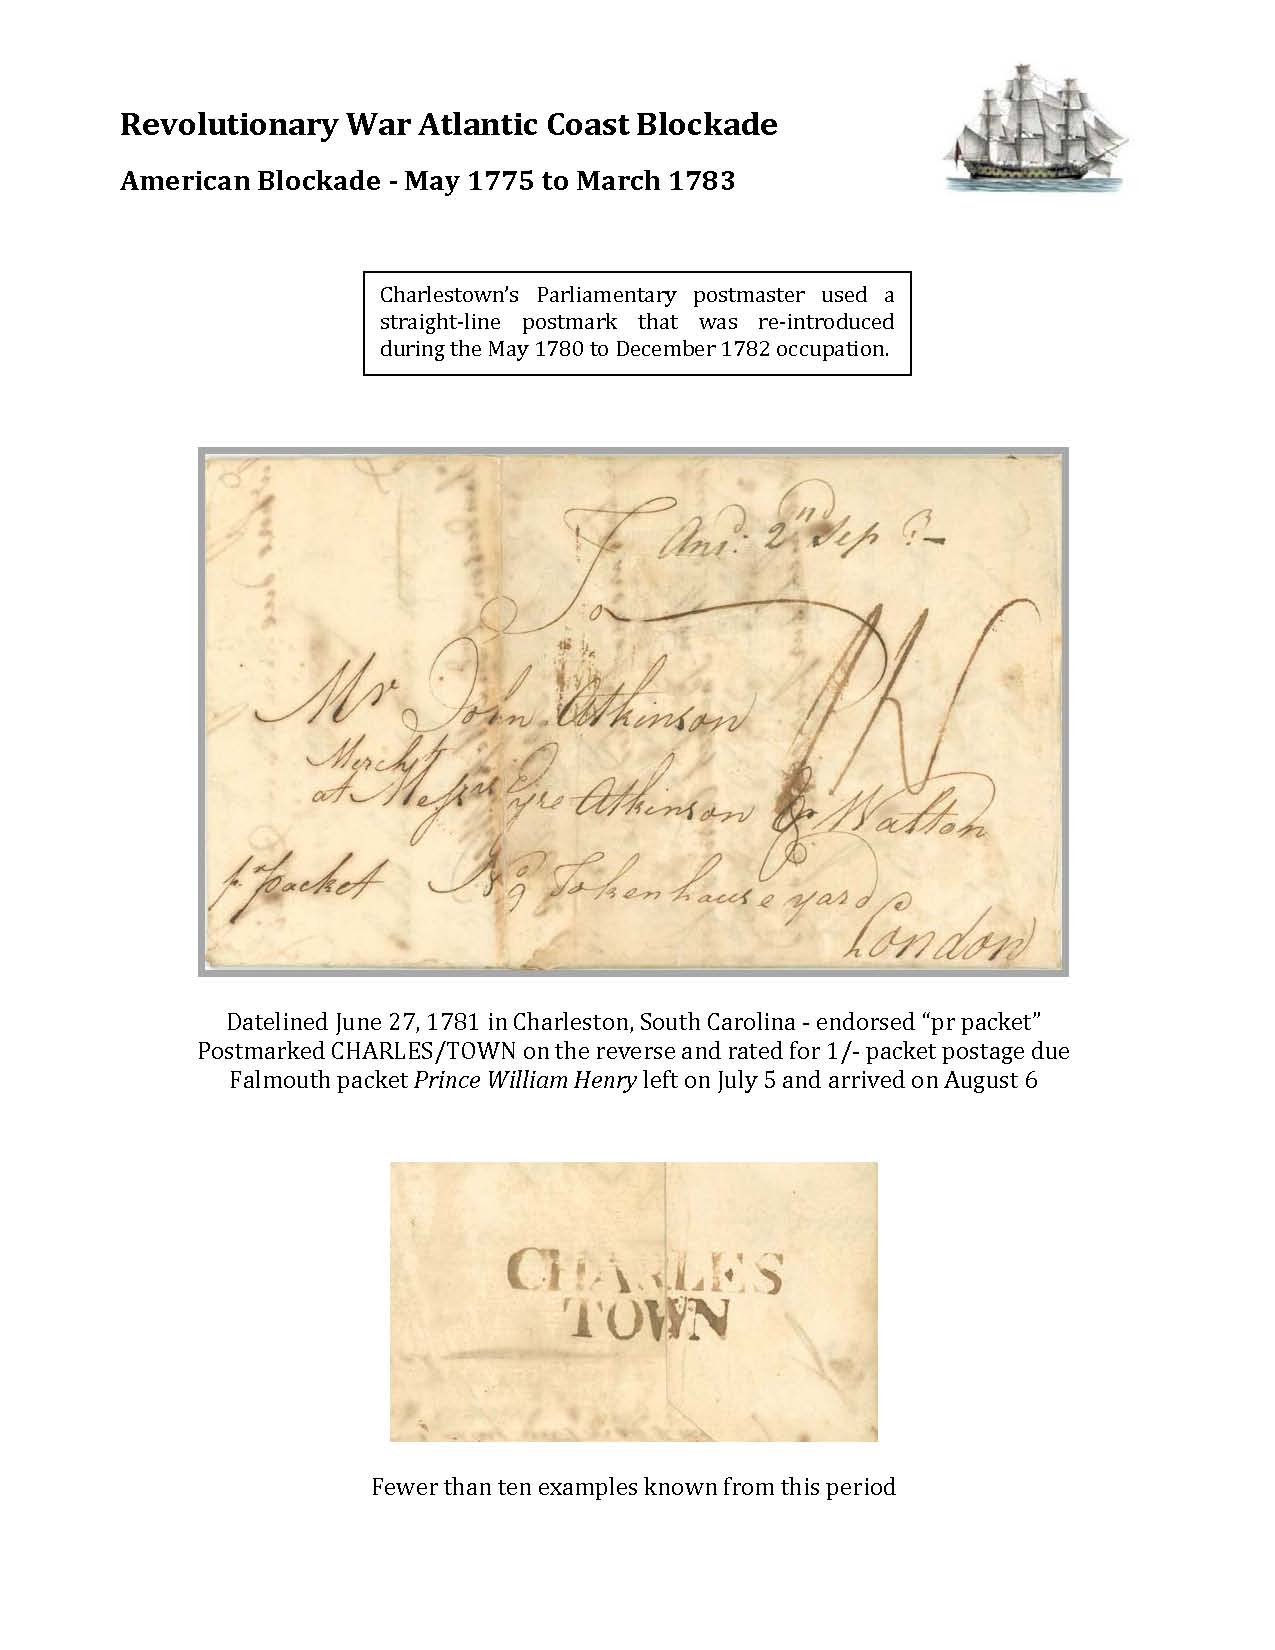 Revolutionary War Atlantic Coast Blockade
American Blockade - May 1775 to March 1783
Charlestown’s Parliamentary postmaster used a
straight-line postmark that was re-introduced
during the May 1780 to December 1782 occupation.
Ansd: 2nd Sepr
To
Mr John Atkinson
Mercht
at Messrs Eyre Atkinson & Walton
pr packet No 9 Tokenhouse yard
London
Datelined June 27, 1781 in Charleston, South Carolina - endorsed “pr packet”
Postmarked CHARLES/TOWN on the reverse and rated for 1/- packet postage due
Falmouth packet Prince William Henry left on July 5 and arrived on August 6
CHARLES
TOWN
Fewer than ten examples known from this period